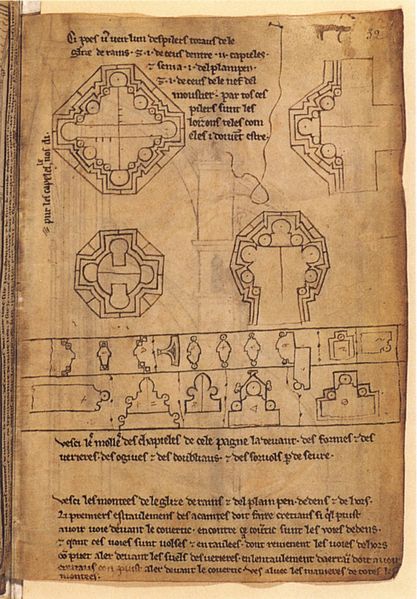 Ci poes uͦ ueir lun des pilers toraus de le
glize de rains · ⁊ · i · de ceus dentre · ii · capieles
⁊ sen i a · i · del plain pen
⁊ · i · de ceus de le nef del
moustier · par tos ces
pilers sunt les
loizons teles com
eles i doiuent estre ·
32
Vesci les molles des chapieles de cele pagne la deuant · des formes ⁊ des
uerieres · des ogiues ⁊ des doubliaus · ⁊ des soruols p̱ deseure ·
Vesci les montees de le glize de rains ⁊ del plain pen · dedens ⁊ de hors ·
Li premiers estaulemens des acaintes doit faire cretiaus si quil puist
auoir uoie deuant le couertic · encontre ce couertic sunt les uoies dedens ·
⁊ quant ces uoies sunt uolses ⁊ entaulees · dont reuienent les uoies dehors
com puet aler deuant les suels des uerieres · en lentaulement daerrain doit auoir
cretiaus con puist aler deuant le couertic · ves aluec les manieres de totes les
montees ·